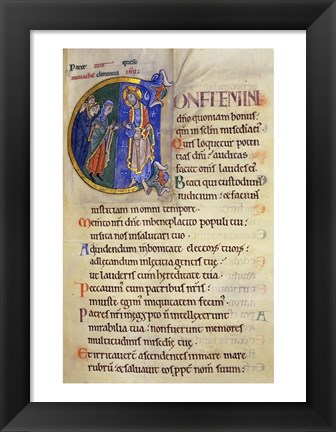 ONFITEMINI
dño quoniam bonus:
qm in sclm misedia ei.
Quis loquetur poten
tias dñi: auditas
faciet om̅s laudes ei.
Beati qui custodiunt
iudicium: & faciunt
iusticiam in omni tempore.
Memento nr̄i dñe in beneplacito populi tui:
uisita nos in salutari tuo.
Ad uidendum in bonitate electorum tuorum:
ad letandum in leticia gentis tue:
ut lauderis cum hereditate tua.
Peccauimus cum patribus nr̄is:
iniuste egim iniquitatem fecim.
Patres nr̄i in egypto n̄ intellexerunt
mirabilia tua: non fuerunt memores
multitudinis misedie tue.
Et irritauerunt ascendentes in mare mare
rubrū & saluauit eos ppt nom suum: